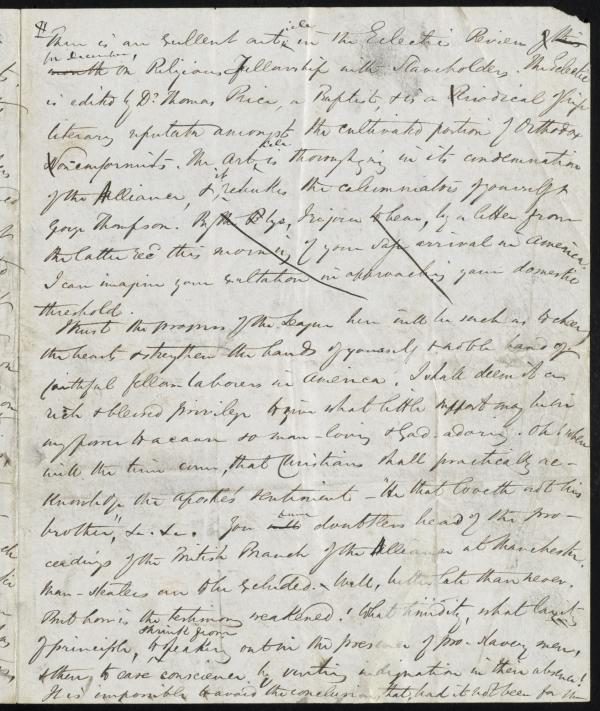 4
There is an excellent article in the Eclectic Review of this
month for December, on Religious fellowship with Slaveholders. The Eclectic
is edited by Dr Thomas Price, a Baptist, & is a Periodical of high
literary reputatn amongst the cultivated portion of Orthodox
Nonconformists. The article is thorough going in its condemnation
of the Alliance, & it rebukes the calumniators of yourself &
George Thompson. By the bye, I rejoice to hear, by a letter from
the latter recd this morning of your safe arrival in America.
I can imagine your exultation in approaching your domestic
threshold.
I trust the progress of the League here will be such as to cheer
the heart & strengthen the hands of yourself & noble band of
faithful fellow laborers in America. I shall deem it a
rich & blessed privilege to give what little support may be in
my power to a cause so man-loving & God-adoring. Oh! when
will the time come, that Christians shall practically ac-
knowledge the apostle's sentiment - "He that loveth not his
brother", &c. &c. You will have doubtless heard of the pro-
ceedings of the British Branch of the Alliance at Manchester.
Man-stealers are to be excluded. Well, better late than never.
But how is the testimony weakened! What timidity, what laxity
of principle, to shrink from speaking out in the presence of pro-slavery men,
& then to ease conscience by venting indignation in their absence!
It is impossible to avoid the conclusion, that, had it not been for the